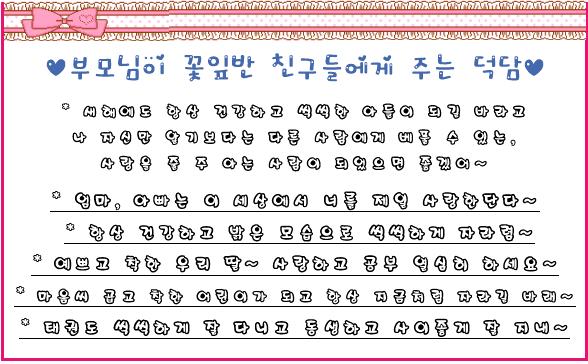 ♥부모님이 꽃잎반 친구들에게 주는 덕담♥
* 새해에도 항상 건강하고 씩씩한 아들이 되길 바라고
나 자신만 알기보다는 다른 사람에게 베풀 수 있는,
사랑을 줄 주 아는 사람이 되었으면 좋겠어~
* 엄마, 아빠는 이 세상에서 너를 제일 사랑한단다~
* 항상 건강하고 밝은 모습으로 씩씩하게 자라렴~
* 예쁘고 착한 우리 딸~ 사랑하고 공부 열심히 하세요~
* 마음씨 곱고 착한 어린이가 되고 항상 지금처럼 자라길 바래~
* 태권도 씩씩하게 잘 다니고 동생하고 사이좋게 잘 지내~